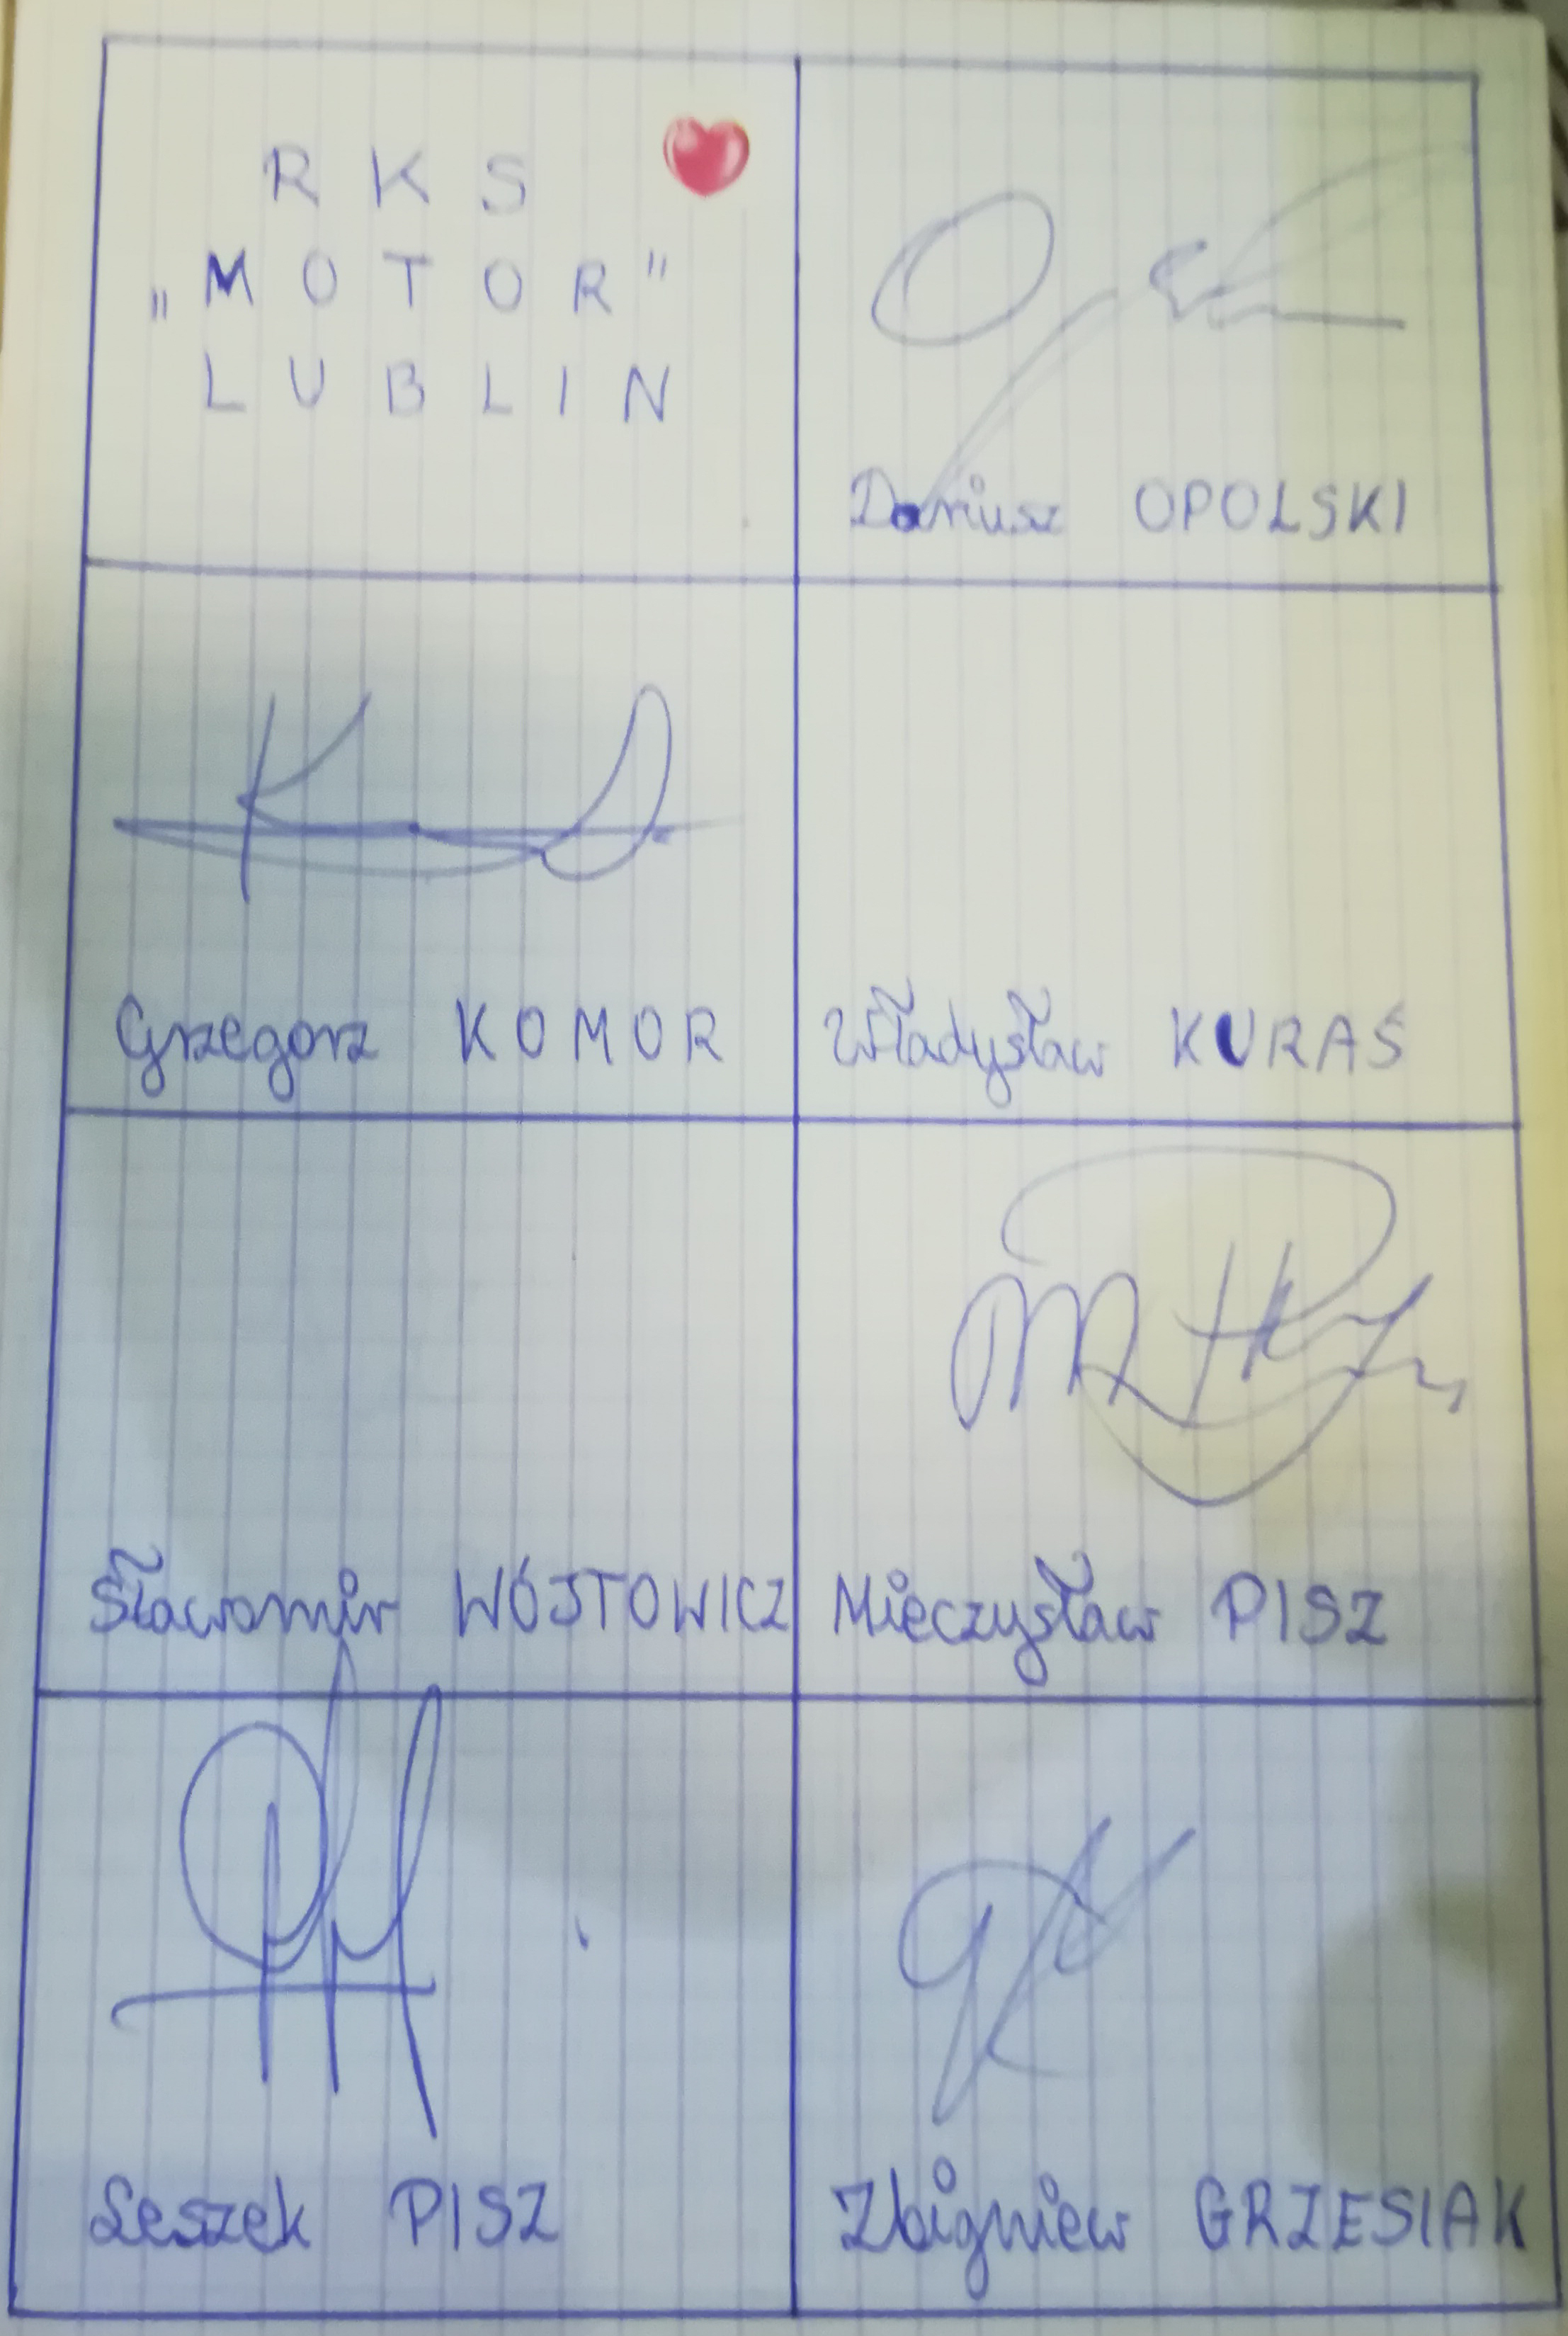 RKS
„MOTOR"
LUBLIN
Dariusz OPOLSKI
Grzegorz KOMOR
Władysław KURAŚ
Sławomir WÓJTOWICZ
Mieczysław PISZ
Leszek PISZ
Zbigniew GRZESIAK